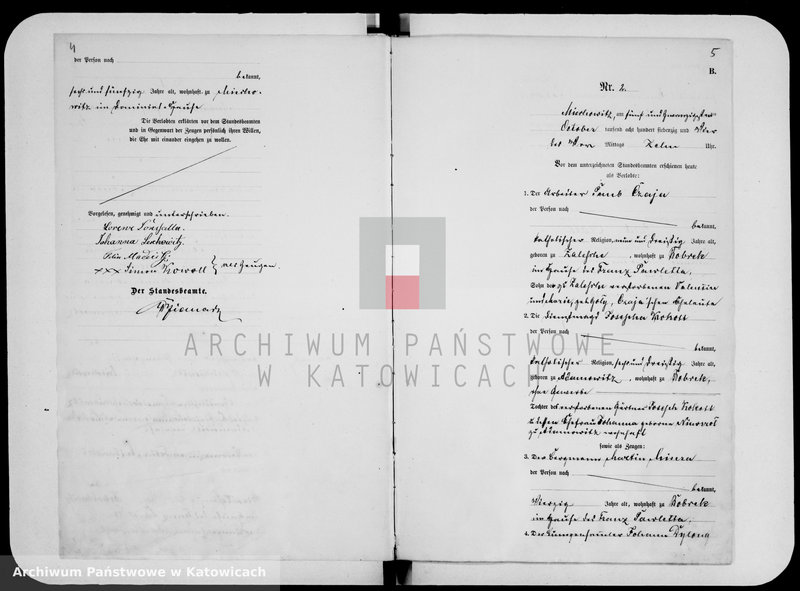 4
der Person nach
bekannt,
sechs und fünfzig Jahre alt, wohnhaft zu Miecho-
witz im Dominial-Hause
Die Verlobten erklärten vor dem Standesbeamten
und in Gegenwart der Zeugen persönlich ihren Willen,
die Ehe mit einander eingehen zu wollen.
Vorgelesen, genehmigt und unterschrieben.
Lorenz
Johanna
xxx Simon Kowoll } als Zeugen.
Der Standesbeamte.
5
B.
Nr. 2.
Miechowitz, am fünf und zwanzigsten
October tausend acht hundert siebenzig und vier
des Vor Mittags Zehn Uhr.
Vor dem unterzeichneten Standesbeamten erschienen heute
als Verlobte:
1. Der Arbeiter Czaja
der Person nach
bekannt,
katholischer Religion, neun und dreißig Jahre alt,
geboren zu Zalesche, wohnhaft zu Bobrek
im Hause des Franz Pawletta.
Sohn der zu Zalesche verstorbenen Valentin
und Marie, Czaja'schen Eheleute
2. Die Dienstmagd Josepha Kokott
der Person nach
bekannt,
katholischer Religion, sechs und dreißig Jahre alt,
geboren zu Adamowitz, wohnhaft zu Bobrek,
ohne Gewerbe
Tochter des verstorbenen Gärtner Joseph Kokott
dessen Ehefrau Johanna geborene
zu Adamowitz wohnhaft
sowie als Zeugen:
3. Der Bergmann Martin
der Person nach
bekannt,
vierzig Jahre alt, wohnhaft zu Bobrek
im Hause des Franz Pawletta.
4. Der Johann
ARCHIWUM PAŃSTWOWE
W KATOWICACH
Archiwum Państwowe w Katowicach